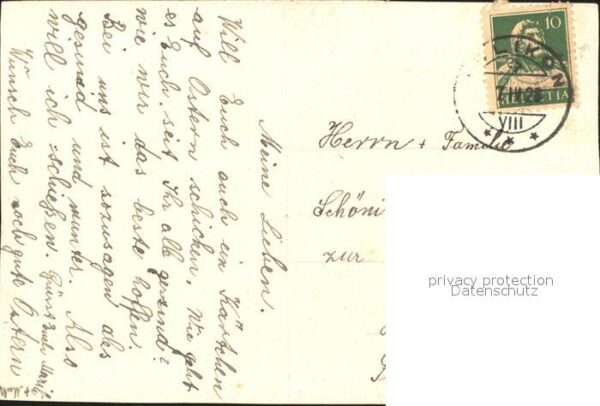 Meine Lieben.
Will Euch auch ein Kärtchen
auf Ostern schicken. Wie geht
es Euch, seit Ihr alle gesund?
wie wir das beste hoffen.
Bei uns ist sozusagen alles
gesund und munter. Also
will ich schießen. Grüsst Euch Marili
Wünsch Euch noch gute Ostern
Herrn + Familie
Schöni
zur
10
HELVETIA
LIKON
VIII
privacy protection
Datenschutz